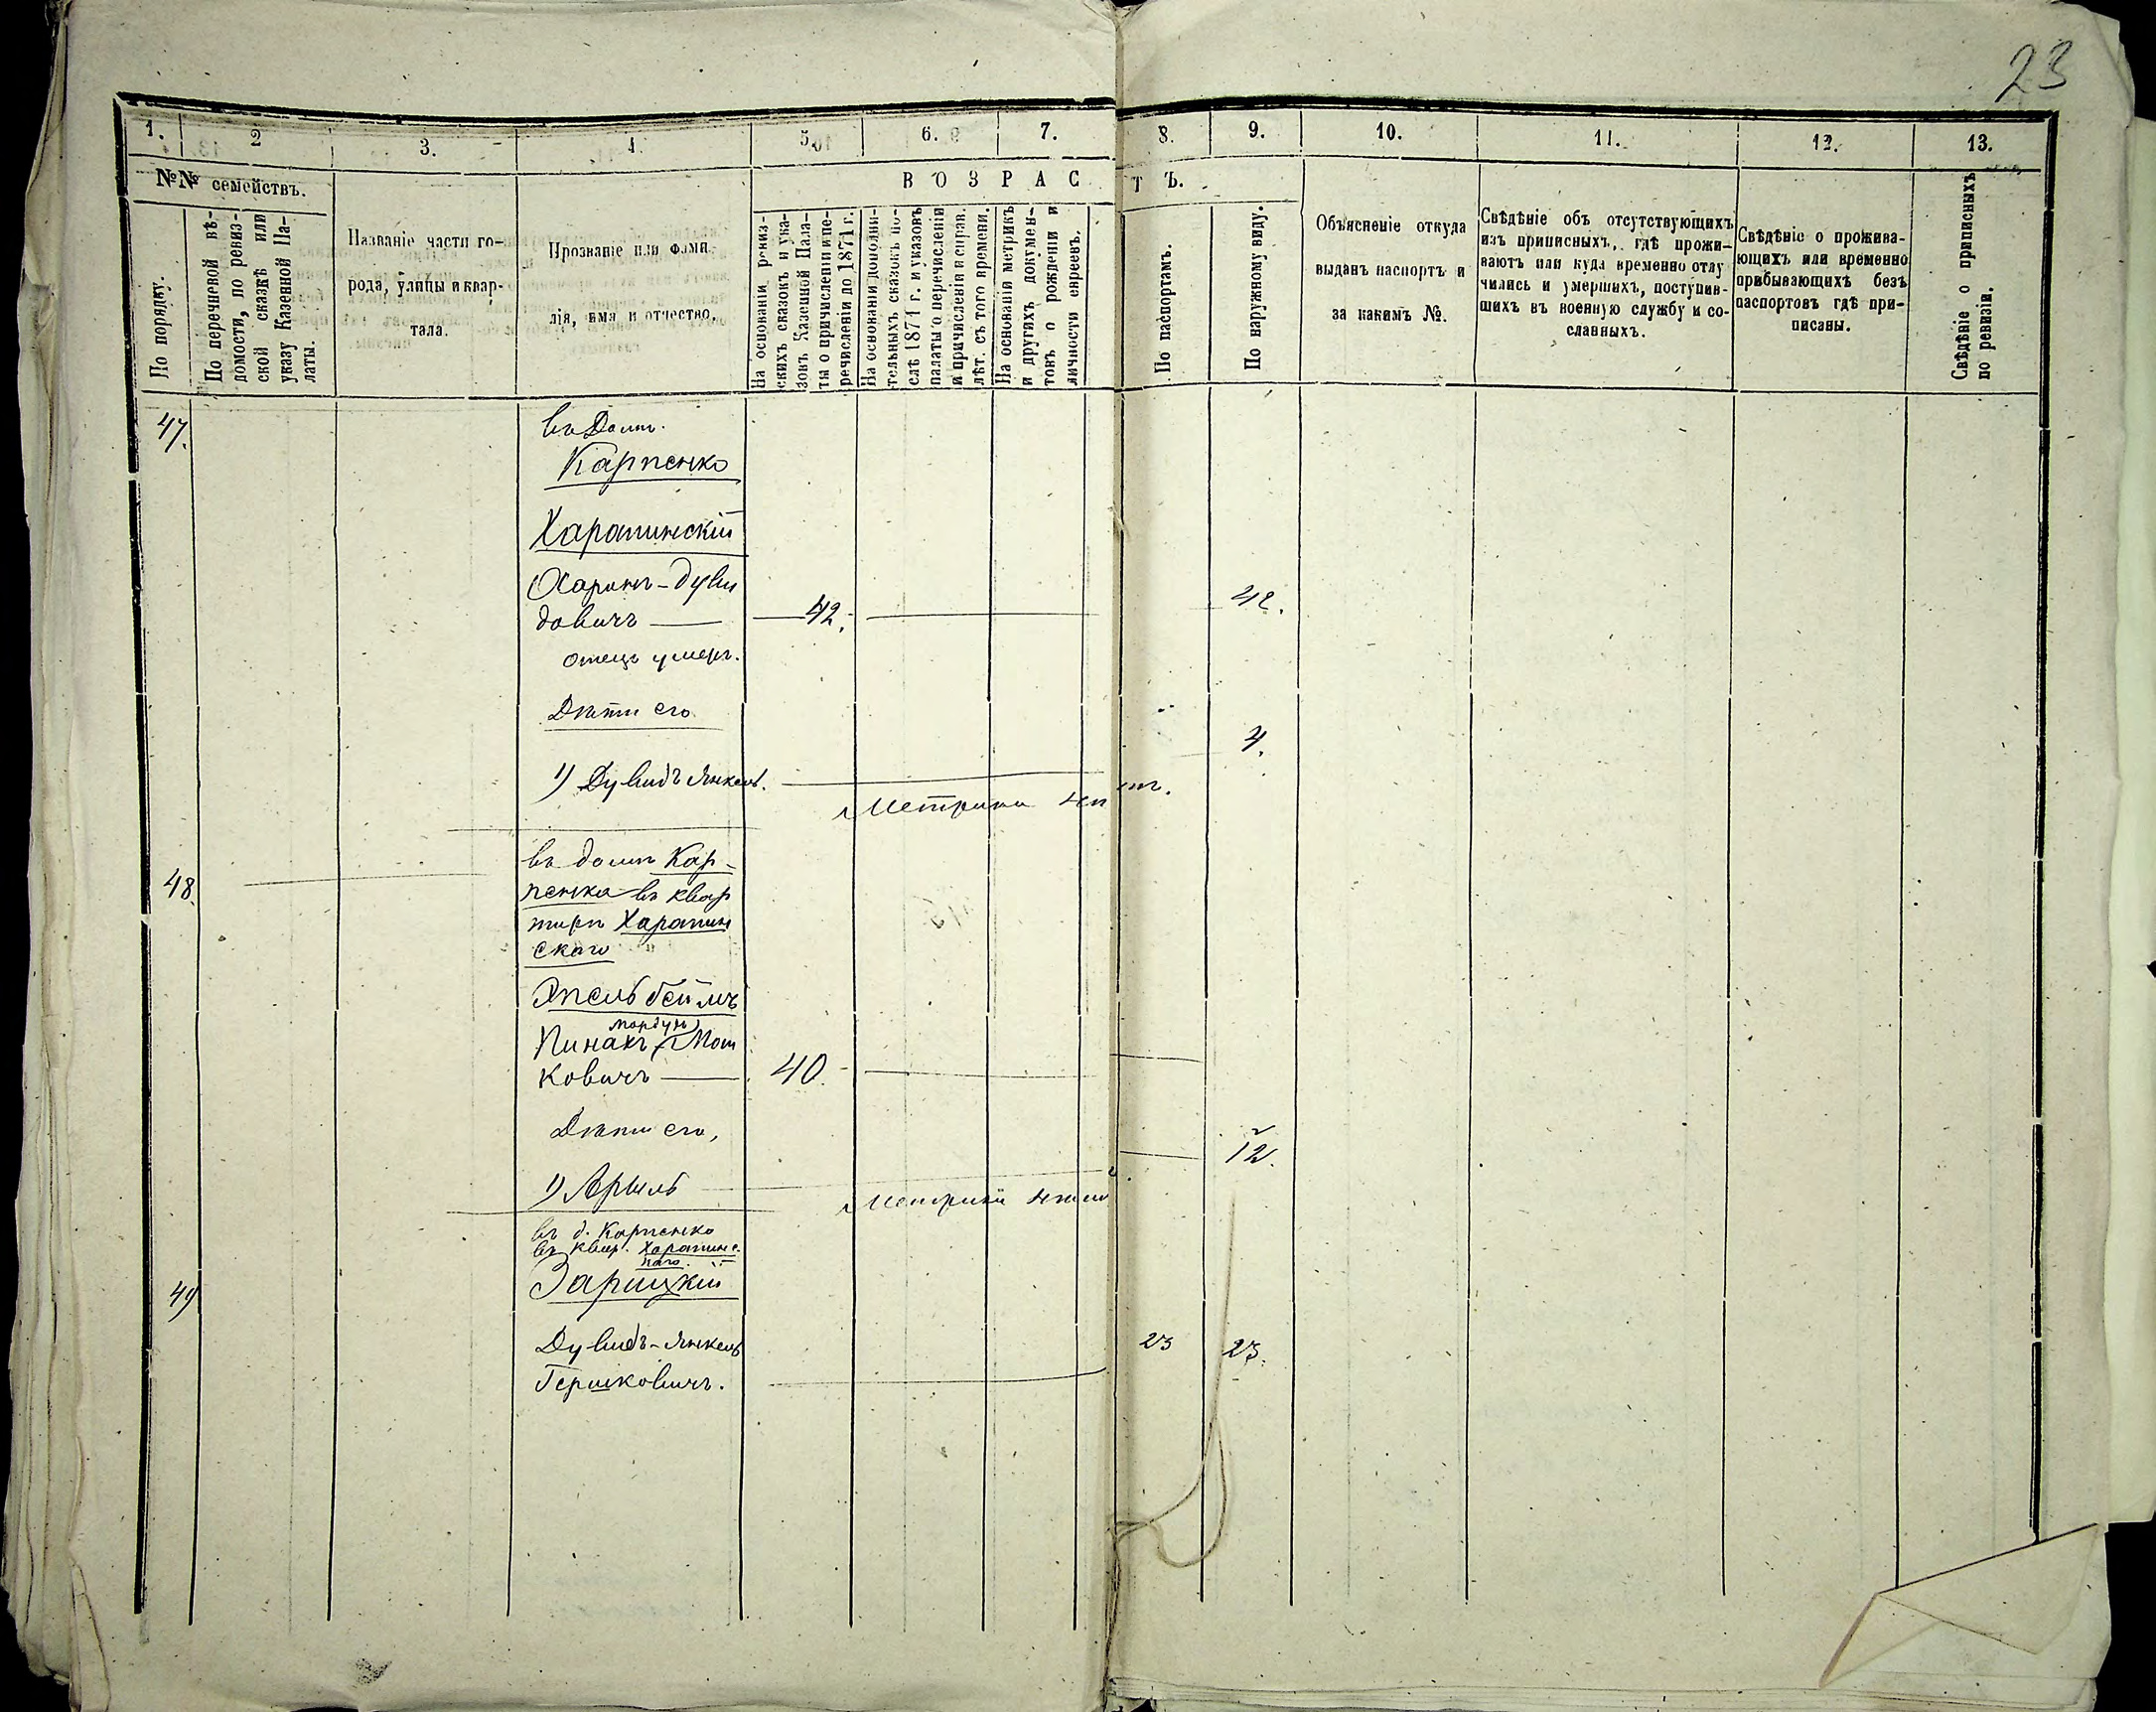 23
1. 2 3. 4. 5. 6. 7. 8. 9. 10. 11. 12. 13.
№№ семействъ.
В О З Р А С Т Ъ.
По порядку.
По перечневой вѣ-
домости, по ревиз-
ской сказкѣ или
указу Казенной Па-
латы.
Названіе части го-
рода, улицы и квар-
тала.
Прозваніе или фами-
лія, имя и отчество.
На основаніи ревиз-
скихъ сказокъ и ука-
зовъ Казенной Пала-
ты о причисленіи и пе-
речисленіи до 1871 г.
На основаніи дополни-
тельныхъ сказокъ по-
слѣ 1871 г. и указовъ
палаты о перечисленіи
и причисленіи и справ.
лѣт. съ того времени.
На основаніи метрикъ
и другихъ докумен-
товъ о рожденіи и
личности евреевъ.
По паспортамъ.
По наружному виду.
Объясненіе откуда
выданъ паспортъ и
за какимъ №.
Свѣдѣніе объ отсутствующихъ
изъ приписныхъ, гдѣ прожи-
ваютъ или куда временно отлу
чились и умершихъ, поступив-
шихъ въ военную службу и со-
сланныхъ.
Свѣдѣніе о прожива-
ющихъ или временно
прибывающихъ безъ
паспортовъ гдѣ при-
писаны.
Свѣдѣніе о приписныхъ
по ревизіи.
47.
въ Домѣ.
Карпенко
Харапинскій
Харонъ-Дуви
довичъ — 42. 42.
отецъ умеръ.
Дѣти его
1) Дувидъ Янкель. 4.
Метрики нѣт.
48.
въ домѣ Кар-
пенка въ квар
тирѣ Харапин
скаго
мордух
Пинахъ Мош
ковичъ — 40.
Дѣти его,
1) Арыль 12.
Метрики нѣт
въ д. Карпенко
въ квар. Харапинс.
каго.
49
Зарицкій
Дувидъ-Янкель 23 23.
Гершковичъ.